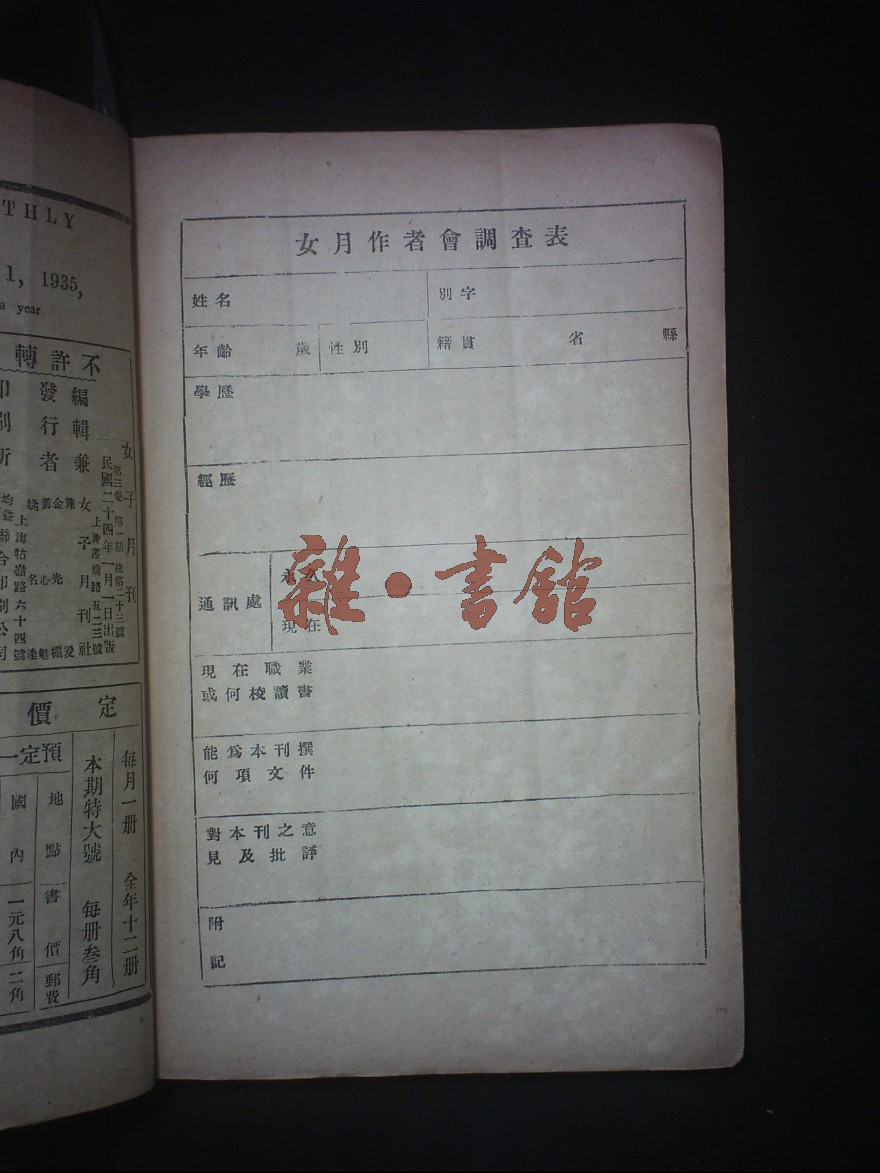 THLY
1, 1935,
a year
不許轉
編輯兼
發行者
女子月刊
第三卷 第一期 總第二十三號
民國二十四年一月一日出版
女子月刊社
上海霞飛路五二三號
上海牯嶺路六十四號
定價
每月一册 全年十二册
本期特大號 每册叁角
預定一
地點 書價 郵費
國內 一元八角 二角
女月作者會調查表
姓名 別字
年齡 歲 性別 籍貫 省 縣
學歷
經歷
通訊處
永久
現在
現在職業
或何校讀書
能爲本刊撰
何項文件
對本刊之意
見及批評
附
記
雜·書館